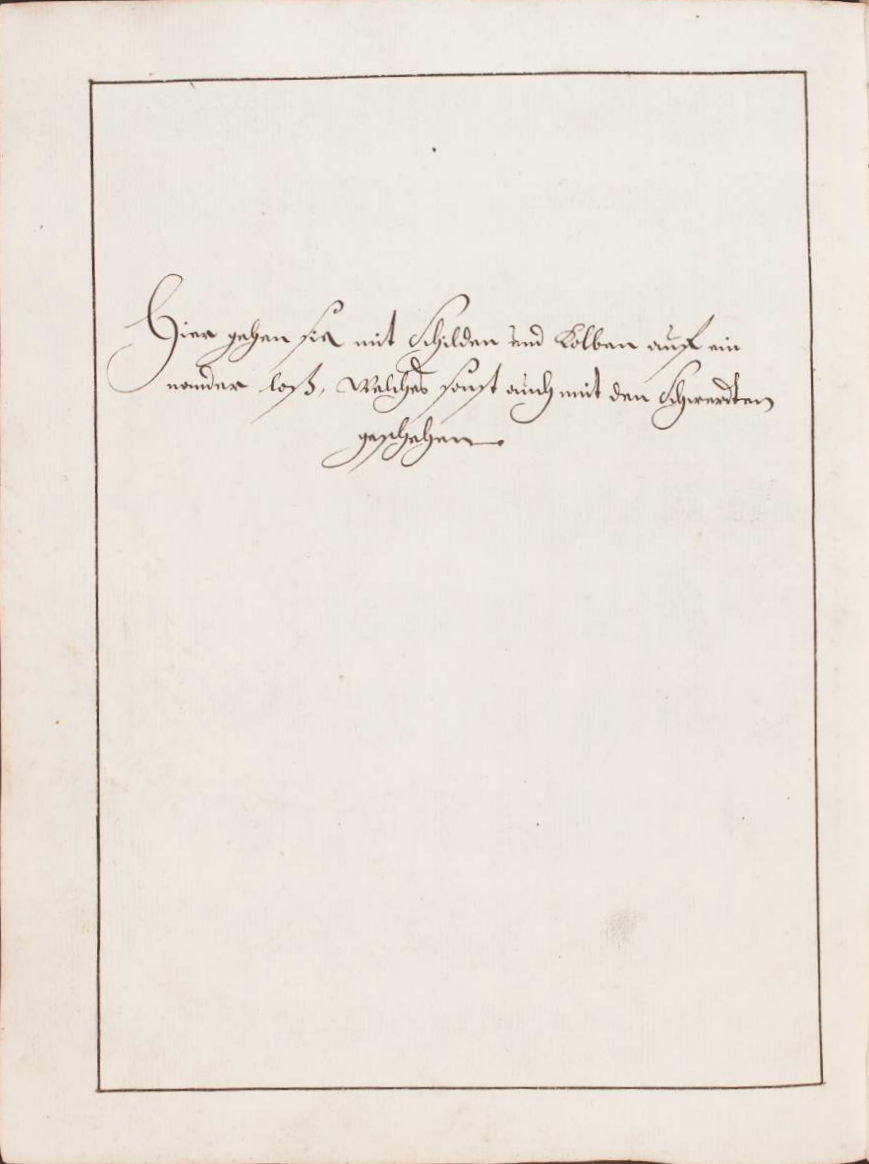 Hier gehen sie mit Schilden und Kolben auff ein
nander loß, Welches sonst auch mit den Schwerdten
geschehen.